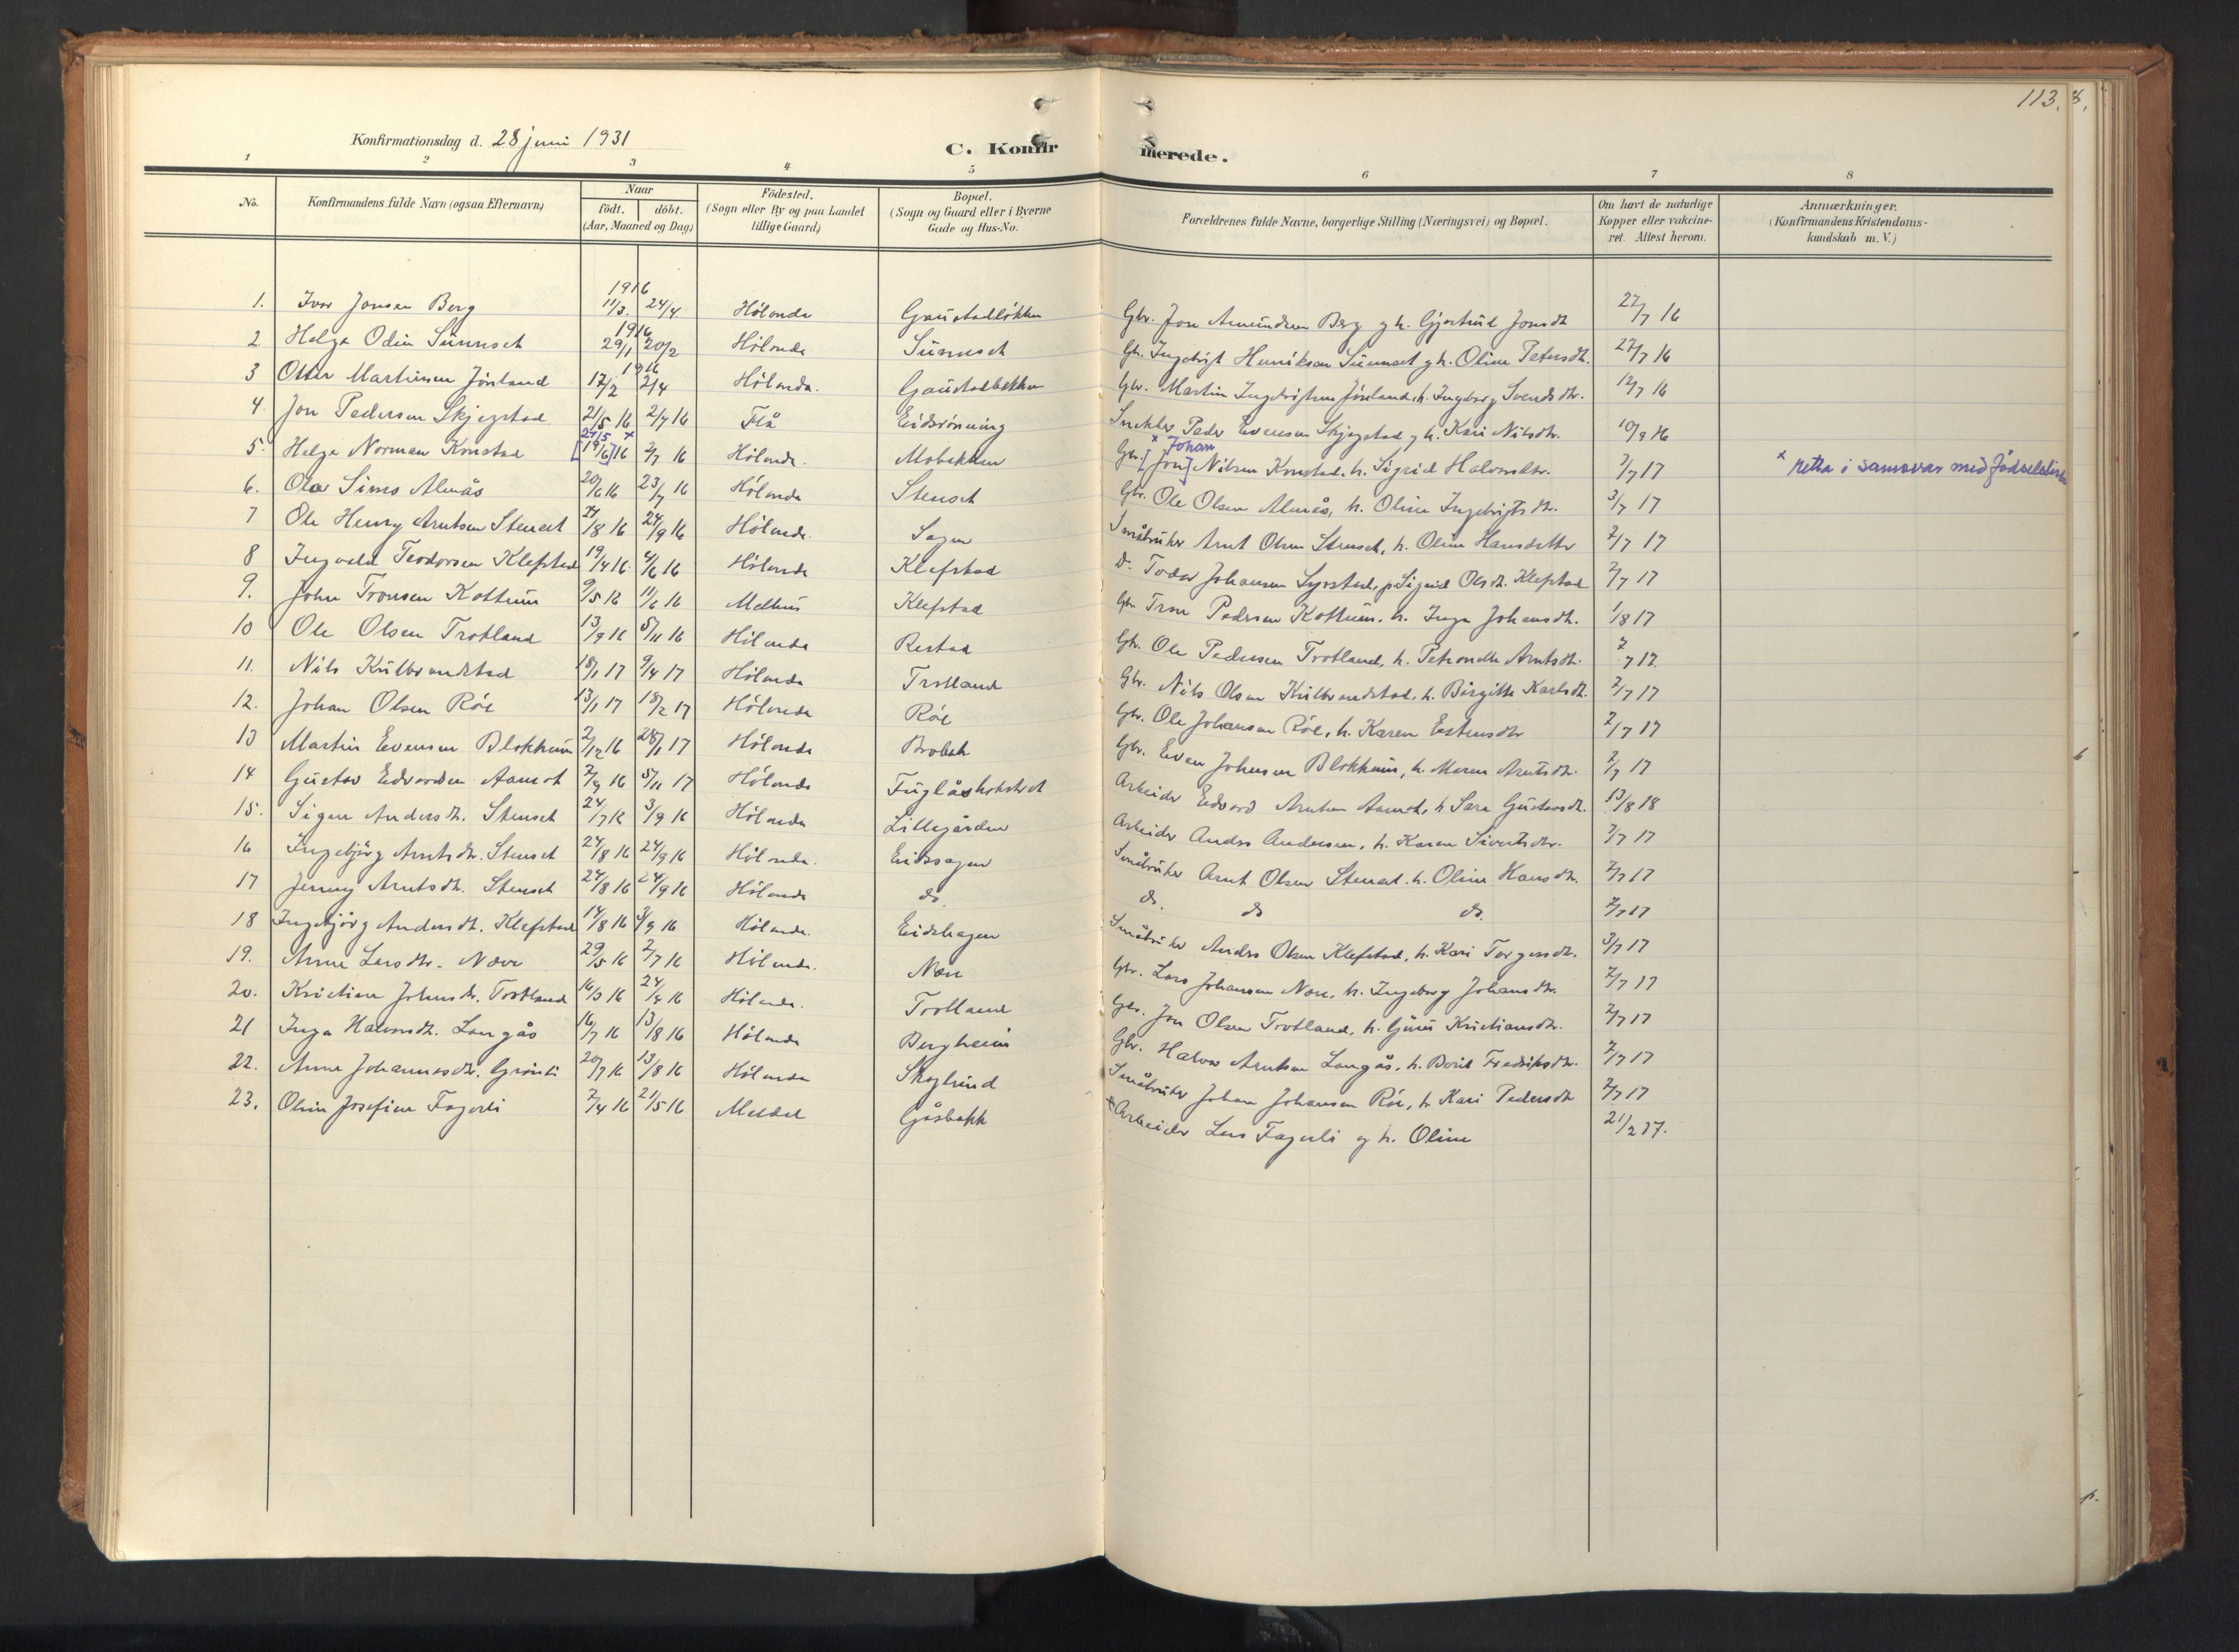 113.
Konfirmationsdag d. 28 juni 1931
C. Konfirmerede.
1 2 3 4 5 6 7 8
No. Konfirmandens fulde Navn (ogsaa Efternavn) Naar födt. döbt. (Aar, Maaned og Dag) Födested. (Sogn eller By og paa Landet tillige Gaard) Bopæl. (Sogn og Gaard eller i Byerne Gade og Hus-No. Forældrenes fulde Navne, borgerlige Stilling (Næringsvei) og Bopæl. Om havt de naturlige Kopper eller vakcineret. Attest herom. Anmærkninger. (Konfirmandens Kristendomskundskab m.V.)
1916
1. Ivar Jonsen Berg 11/3. 24/4 Hölonda Gaustadløkken Gbr. Jon Amundsen Berg og h. Gjertrud Jonsdt 27/7 16
1916
2 Helge Odin Sunnset 29/1 20/2 Hölonda Sunnset Gbr. Ingebrigt Henriksen Sunnset og h. Oline Petersdt. 27/7 16
1916
3 Otter Martinsen Jönland 17/2 2/4 Hölonda. Gaustadbakken Gbr. Martin Ingebrigtsen Jönland, h. Ingeborg Svendsdtr. 12/7 16
4. Jon Pedersen Skjegstad 21/5 16 2/7 16 Flå Eidsröning Snekker Peder Evensen Skjegstad og h. Kari Nilsdtr. 10/8 16
27/5 x x Johan
5. Helge Norman Konstad [19/6] 16 2/7 16 Hölonda. Mobakken Gbr. [Jon] Nilsen Konstad. h. Sigrid Halvorsdtr. 2/7 17 x retta i samsvar med fødselslista
6. Olav Sims Almås 20/6 16 23/7 16 Hölonda Stenset Gbr. Ole Olsen Almås, h. Oline Ingebrigtsdt. 3/7 17
7 Ole Henry Arntsen Stenset 24/8 16 24/9 16 Hölonda. Sagen Småbruker Arnt Olsen Stenset, h. Oline Hansdatter 2/7 17
8 Ingvald Teodorsen Klefstad 19/4 16 4/6 16 Hölonda Klefstad D. Todor Johansen Syrstad, p. Sigrid Olsdt. Klefstad 2/7 17
9. John Tronsen Kottum 9/5 16 11/6 16 Melhus Klefstad Gbr Tron Pedersen Kottum. h. Inga Johansdt. 1/8 17
10 Ole Olsen Trotland 13/9 16 5/11 16 Hölonda Restad Gbr. Ole Pedersen Trotland, h. Petronelle Arntsdt. 2/7 17.
11. Nils Kulbrandstad 18/1 17 9/4 17 Hölonda Trotland Gbr. Nils Olsen Kulbrandstad, h. Birgitte Karlsdt. 2/7 17
12. Johan Olsen Röe 13/1 17 18/2 17 Hölonda Röe Gbr. Ole Johansen Röe, h. Karen Estensdtr 2/7 17
13 Martin Evensen Blokkum 2/12 16 28/1 17 Hölonda Brobak Gbr. Even Johnsen Blokkum, h. Maren Arntsdt. 2/7 17
14 Gustav Edvardsen Aamot 7/9 16 5/11 17 Hölonda Arbeider Edvard Arntsen Aamot, h Sara Gustavsdt. 13/8 18
15. Signe Andersdt. Stenset 24/7 16 3/9 16 Hölonda Lillegården Arbeider Anders Andersen, h. Karen Sivertsdtr. 2/7 17
16 Ingebjörg Arntsdt. Stenset 24/8 16 24/9 16 Hölonda. Eidssagen Småbruker Arnt Olsen Stenset. h. Oline Hansdt. 2/7 17
17 Jenny Arntsdt. Stenset 24/8 16 24/9 16 Hölonda do. do. do do. 2/7 17
18 Ingebjörg Andersdt. Klefstad 14/8 16 3/9 16 Hölonda. Eidshagen Småbruker Anders Olsen Klefstad, h. Kari Torgersdt. 3/7 17
19. Anne Larsdtr. Nore 29/5 16 2/7 16 Hölonda. Nore Gbr. Lars Johansen Nore, h. Ingeborg Johansdtr. 2/7 17
20. Kristine Johnsdt. Trotland 16/3 16 24/4 16 Hölonda. Trotland Gbr. Jon Olsen Trotland, h. Guru Kristiansdt. 2/7 17
21 Inga Halvorsdt. Langås 16/7 16 13/8 16 Hölonda Bergheim Gbr. Halvor Arntsen Langås, h. Berit Fredriksdtr. 2/7 17
22. Anne Johannesdtr. Grönli 20/7 16 13/8 16 Hölonda Skoglund Småbruker Johan Johansen Röe, h. Kari Pedersdt 2/7 17
23. Oline Josefine Fagerli 7/4 16 21/5 16 Meldal Gåsbakk Arbeider Lars Fagerli og h. Oline 21/2 17.